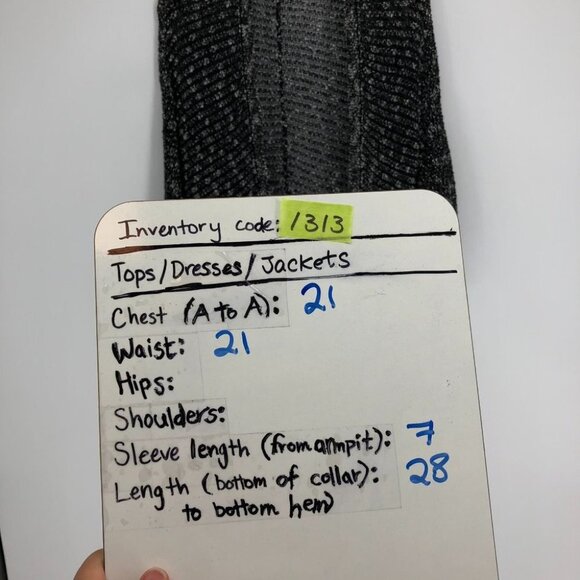 Inventory code: 1313
Tops/Dresses/Jackets
Chest (A to A): 21
Waist: 21
Hips:
Shoulders:
Sleeve length (from armpit): 7
Length (bottom of collar): 28
to bottom hem)